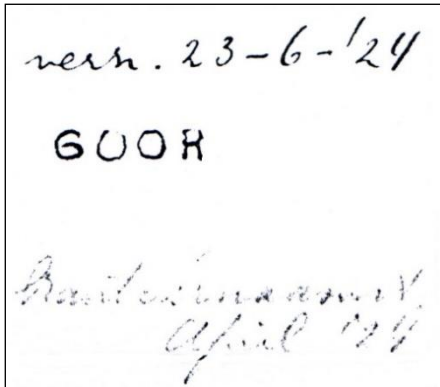 vern. 23-6-'24
GOOR
April '24